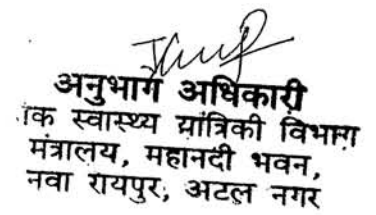 अनुभाग अधिकारी
क स्वास्थ्य यांत्रिकी विभाग
मंत्रालय, महानदी भवन,
नवा रायपुर, अटल नगर